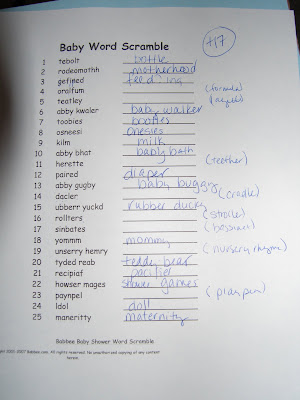 Baby Word Scramble
+17
1 tebolt bottle
2 radeomothh motherhood
3 gefined feeding
4 oralfum (formula)
5 teatley
6 abby kwaler baby walker
7 toobies booties
8 osneesi onesies
9 kilm milk
10 abby bhat baby bath
11 herette (teether)
12 paired diaper
13 abby gugby baby buggy
14 dacler (cradle)
15 ubberr yuckd rubber ducky
16 rollters (stroller)
17 sinbates
18 yommm mommy
19 unserry hemry (nursery rhyme)
20 tyded reab teddy bear
21 recipiaf pacifier
22 howser mages shower games
23 paynpel (playpen)
24 ldol doll
25 maneritty maternity
Babbee Baby Shower Word Scramble
2007 Babbee.com. All rights reserved. No unauthorized copying of any content
herein.